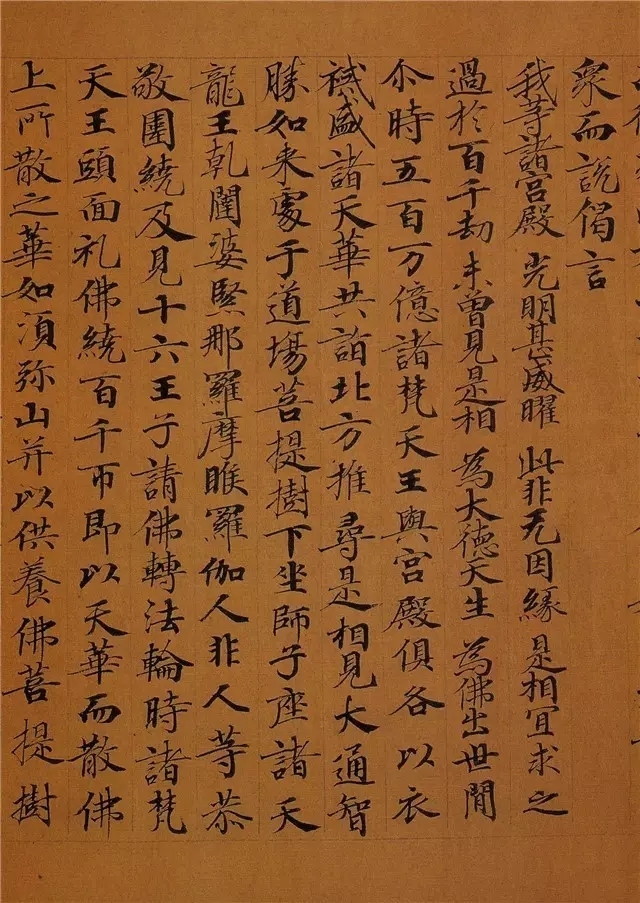 衆而說偈言
我等諸宮殿 光明甚威曜 此非无因緣 是相宜求之
過於百千劫 未曾見是相 為大德天生 為佛出世間
尒時五百万億諸梵天王與宮殿俱各以衣
祴盛諸天華共詣北方推尋是相見大通智
勝如来處于道場菩提樹下坐師子座諸天
龍王乹闥婆緊那羅摩睺羅伽人非人等恭
敬圍繞及見十六王子請佛轉法輪時諸梵
天王頭面礼佛繞百千帀即以天華而散佛
上所散之華如須弥山并以供養佛菩提樹